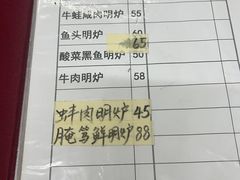 牛蛙咸肉明炉 55
鱼头明炉 65
酸菜黑鱼明炉 50
牛肉明炉 58
蚌肉明炉 45
腌笃鲜明炉 88